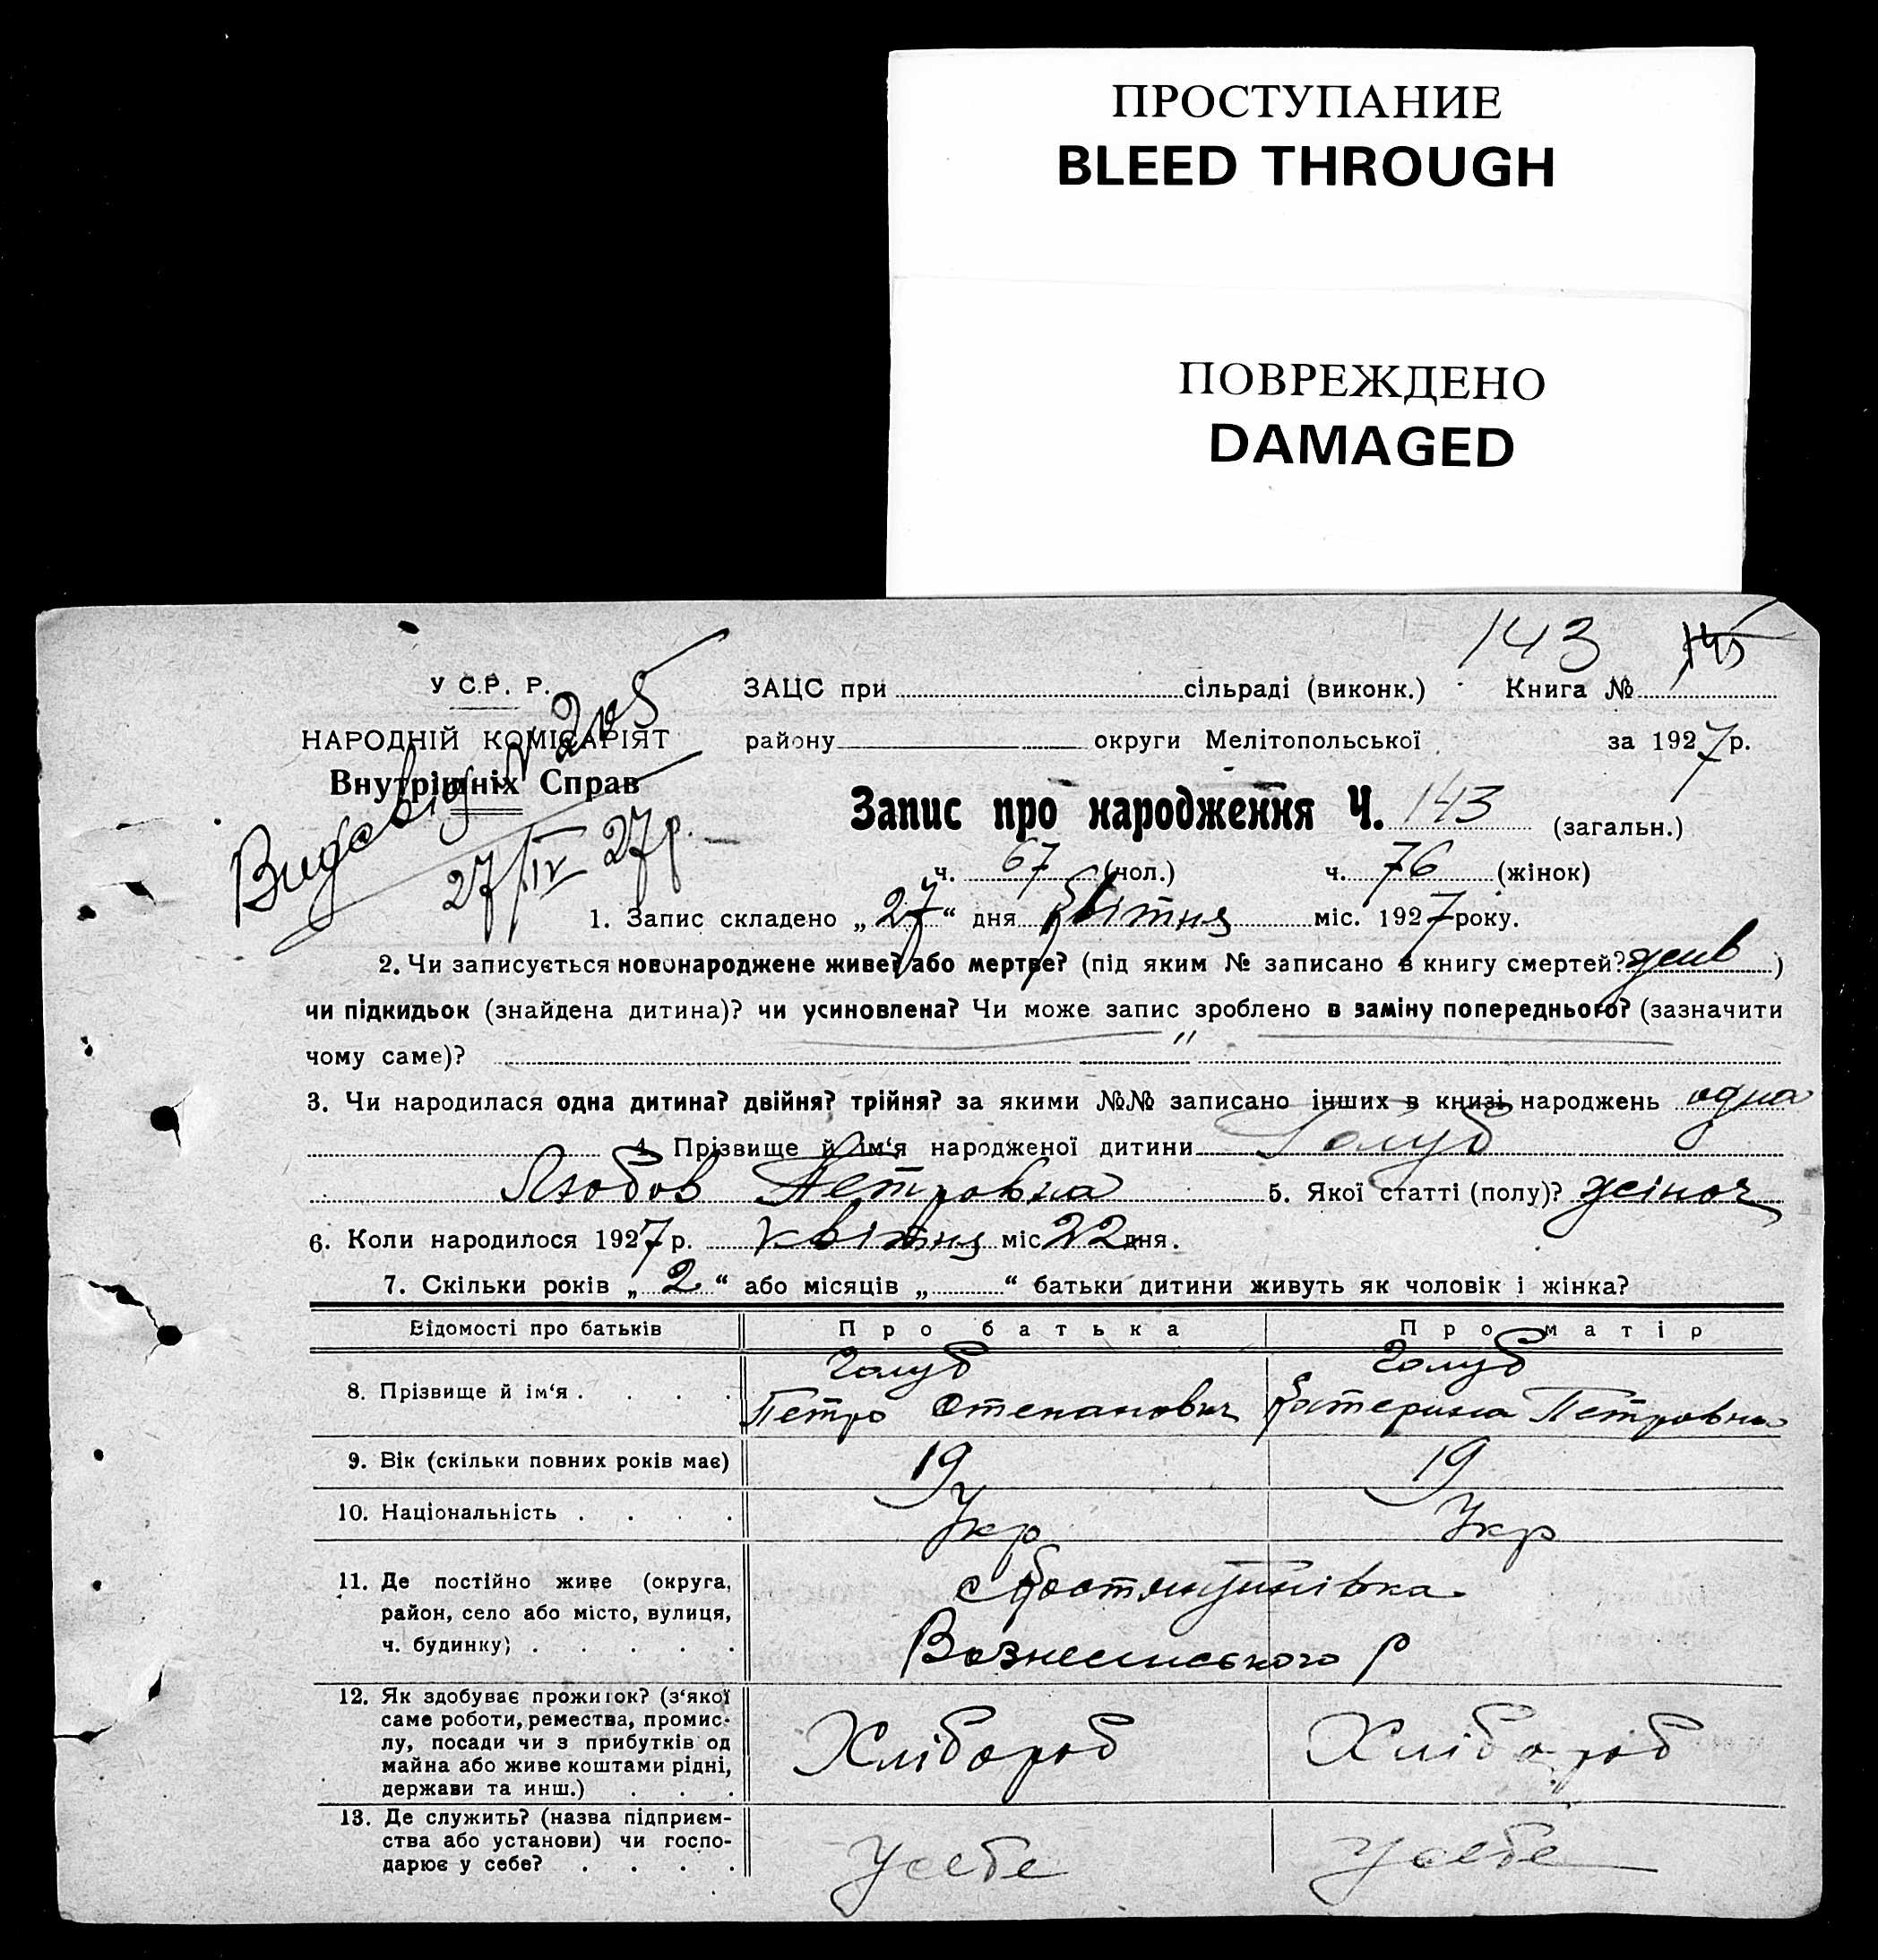 ПРОСТУПАНИЕ
BLEED THROUGH
ПОВРЕЖДЕНО
DAMAGED
143 145
У С.Р. Р.
НАРОДНІЙ КОМІСАРІЯТ
Внутрішніх Справ
27/IV 27 р.
ЗАЦС при сільраді (виконк.) Книга №
району округи Мелітопольської за 1927 р.
Запис про народження Ч. 143 (загальн.)
ч. 67 (чол.) ч. 76 (жінок)
1. Запис складено „27“ дня Квітня міс. 1927 року.
2. Чи записується новонароджене живе? або мертве? (під яким № записано в книгу смертей? жив)
чи підкидьок (знайдена дитина)? чи усиновлена? Чи може запис зроблено в заміну попереднього? (зазначити
чому саме)? "
3. Чи народилася одна дитина? двійня? трійня? за якими №№ записано інших в книзі народжень одна
4. Прізвище й ім‘я народженої дитини Голуб
Любов Петровна 5. Якої статті (полу)? жіноч
6. Коли народилося 1927 р. квітня міс 22 дня.
7. Скільки років „2“ або місяців „ “ батьки дитини живуть як чоловік і жінка?
Відомості про батьків Про батька Про матір
8. Прізвище й ім‘я . . . . Голуб Петро Степанович Голуб Катерина Петровна
9. Вік (скільки повних років має) 19 19
10. Національність . . . . Укр Укр
11. Де постійно живе (округа,
район, село або місто, вулиця,
ч. будинку) . . . . .
с Костянтинівка
Вознесенського р
12. Як здобуває прожиток? (з‘якої
саме роботи, ремества, промис-
лу, посади чи з прибутків од
майна або живе коштами рідні,
держави та инш.) . . .
Хлібороб Хлібороб
13. Де служить? (назва підприєм-
ства або установи) чи госпо-
дарює у себе? . . . .
У себе У себе